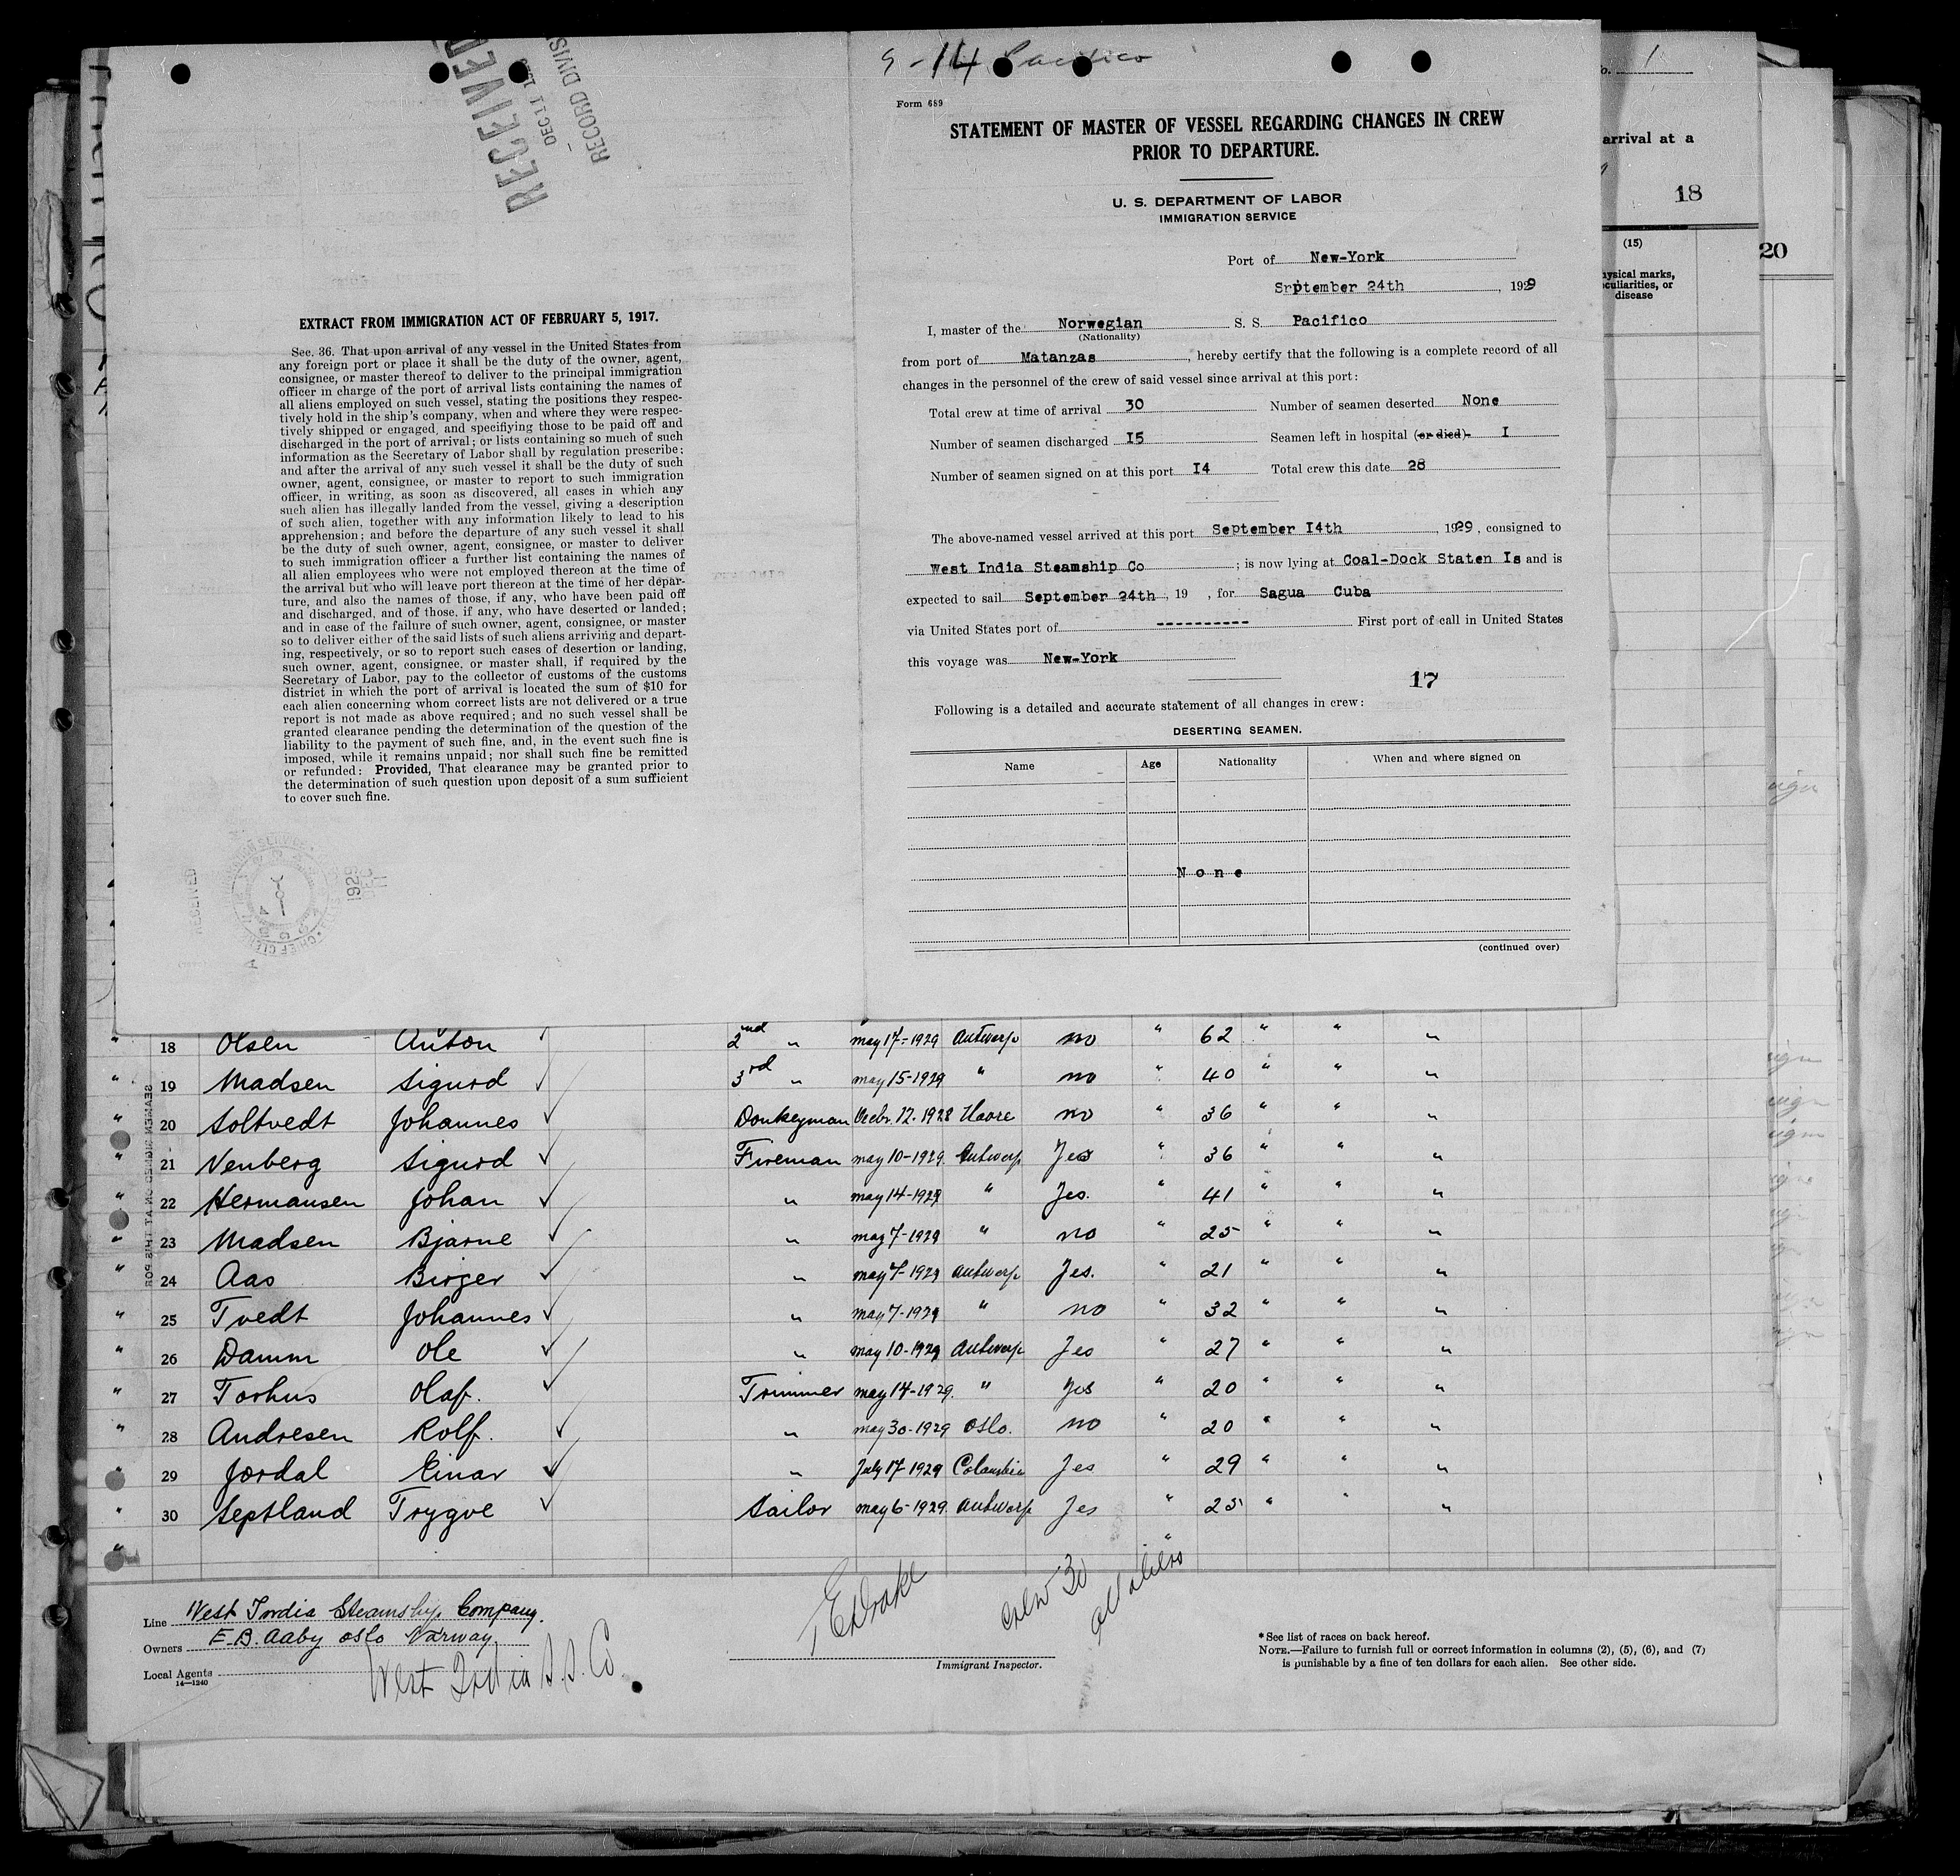 RECEIVED
DEC 11 1929
RECORD DIVISI
EXTRACT FROM IMMIGRATION ACT OF FEBRUARY 5, 1917.
Sec. 36. That upon arrival of any vessel in the United States from
any foreign port or place it shall be the duty of the owner, agent,
consignee, or master thereof to deliver to the principal immigration
officer in charge of the port of arrival lists containing the names of
all aliens employed on such vessel, stating the positions they respec-
tively hold in the ship's company, when and where they were respec-
tively shipped or engaged, and specifiying those to be paid off and
discharged in the port of arrival; or lists containing so much of such
information as the Secretary of Labor shall by regulation prescribe;
and after the arrival of any such vessel it shall be the duty of such
owner, agent, consignee, or master to report to such immigration
officer, in writing, as soon as discovered, all cases in which any
such alien has illegally landed from the vessel, giving a description
of such alien, together with any information likely to lead to his
apprehension; and before the departure of any such vessel it shall
be the duty of such owner, agent, consignee, or master to deliver
to such immigration officer a further list containing the names of
all alien employees who were not employed thereon at the time of
the arrival but who will leave port thereon at the time of her depar-
ture, and also the names of those, if any, who have been paid off
and discharged, and of those, if any, who have deserted or landed;
and in case of the failure of such owner, agent, consignee, or master
so to deliver either of the said lists of such aliens arriving and depart-
ing, respectively, or so to report such cases of desertion or landing,
such owner, agent, consignee, or master shall, if required by the
Secretary of Labor, pay to the collector of customs of the customs
district in which the port of arrival is located the sum of $10 for
each alien concerning whom correct lists are not delivered or a true
report is not made as above required; and no such vessel shall be
granted clearance pending the determination of the question of the
liability to the payment of such fine, and, in the event such fine is
imposed, while it remains unpaid; nor shall such fine be remitted
or refunded: Provided, That clearance may be granted prior to
the determination of such question upon deposit of a sum sufficient
to cover such fine.
RECEIVED
1929
DEC
11
9-14 Pacifico
Form 689
STATEMENT OF MASTER OF VESSEL REGARDING CHANGES IN CREW
PRIOR TO DEPARTURE.
U. S. DEPARTMENT OF LABOR
IMMIGRATION SERVICE
Port of New-York
Srptember 24th, 1929
I, master of the Norwegian S. S. Pacifico
(Nationality)
from port of Matanzas, hereby certify that the following is a complete record of all
changes in the personnel of the crew of said vessel since arrival at this port:
Total crew at time of arrival 30 Number of seamen deserted None
Number of seamen discharged I5 Seamen left in hospital (or died) I
Number of seamen signed on at this port I4 Total crew this date 28
The above-named vessel arrived at this port September I4th, 1929, consigned to
West India Steamship Co; is now lying at Coal-Dock Staten Is and is
expected to sail September 24th, 19 , for Sagua Cuba
via United States port of ---------- First port of call in United States
this voyage was New-York
17
Following is a detailed and accurate statement of all changes in crew:
DESERTING SEAMEN.
Name Age Nationality When and where signed on
None
(continued over)
o. 1
arrival at a
18
(15)
ysical marks,
culiarities, or
disease
20
" 18 Olsen Anton ✓ 2nd " may 17-1929 Antwerp no " 62 " " "
" 19 Madsen Sigurd ✓ 3rd " may 15-1929 " no " 40 " " "
" 20 Soltvedt Johannes ✓ Donkeyman Decbr. 12. 1928 Havre no " 36 " " "
" 21 Venberg Sigurd ✓ Fireman may 10-1929. Antwerp Yes " 36 " " "
" 22 Hermansen Johan ✓ " may 14-1929 " Yes. " 41 " " "
" 23 Madsen Bjarne ✓ " may 7-1929 " no " 25 " " "
" 24 Aas Birger ✓ " may 7-1929 Antwerp Yes. " 21 " " "
" 25 Tvedt Johannes ✓ " may 7-1929 " no " 32 " " "
" 26 Damm Ole ✓ " may 10-1929 Antwerp Yes " 27 " " "
" 27 Torhus Olaf. ✓ Trimmer may 14-1929. " Yes " 20 " " "
" 28 Andresen Rolf. ✓ " may 30-1929 Oslo. no " 20 " " "
" 29 Jordal Einar ✓ " July 17-1929 Columbia Yes " 29 " " "
" 30 Septland Trygve ✓ Sailor may 6-1929. Antwerp Yes " 25 " " "
SEAMEN SIGNED ON AT THIS POR
Line West India Steamship Company.
Owners E.B. Aaby Oslo Norway.
Local Agents West India S.S. Co
14—1240
Crew 30
all aliens
Immigrant Inspector.
*See list of races on back hereof.
NOTE.—Failure to furnish full or correct information in columns (2), (5), (6), and (7)
is punishable by a fine of ten dollars for each alien. See other side.